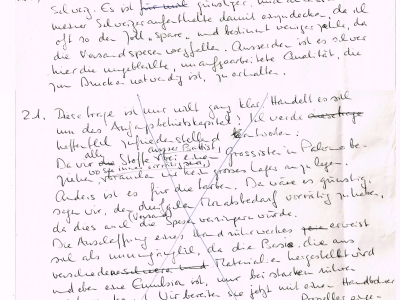 Schweiz. Es ist für mich günstiger,
meiner Schweizeraufenthalte damit einzudecken, da ich
oft so den Zoll "spare" und bestimmt weniger zahle, da
die Versandspesen wegfallen. Ausserdem ist es schwer
hier die ungebleichte, unaufgearbeitete Qualität, die
zum Drucken notwendig ist, zu erhalten.
21. Diese Frage ist mir nicht ganz klar. Handelt es sich
um das Anfangsbetriebskapital? Ich werde diese Frage
hoffentlich zufriedenstellend beantworten:
Da wir alle Stoffe, ausser Battist, bei einem Grossisten in Palermo be-
ziehen, brauchen wir kein grosses Lager anzulegen.
Anders ist es für die Farben. Da wäre es günstig,
sagen wir, den dreifachen Monatsbedarf vorrätig zu haben,
da dies auch die Versand Spesen verringern würde.
Die Anschaffung eines Handrührwerkes erweist
sich als unumgänglich, da die Basis, die aus
verschiedenen Materialien hergestellt wird
und eben eine Emulsion ist, nur bei starkem rühren
Wir bereiten sie jetzt mit einer Handbohrer